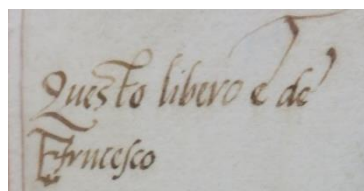 Questo libero e de
Francesco